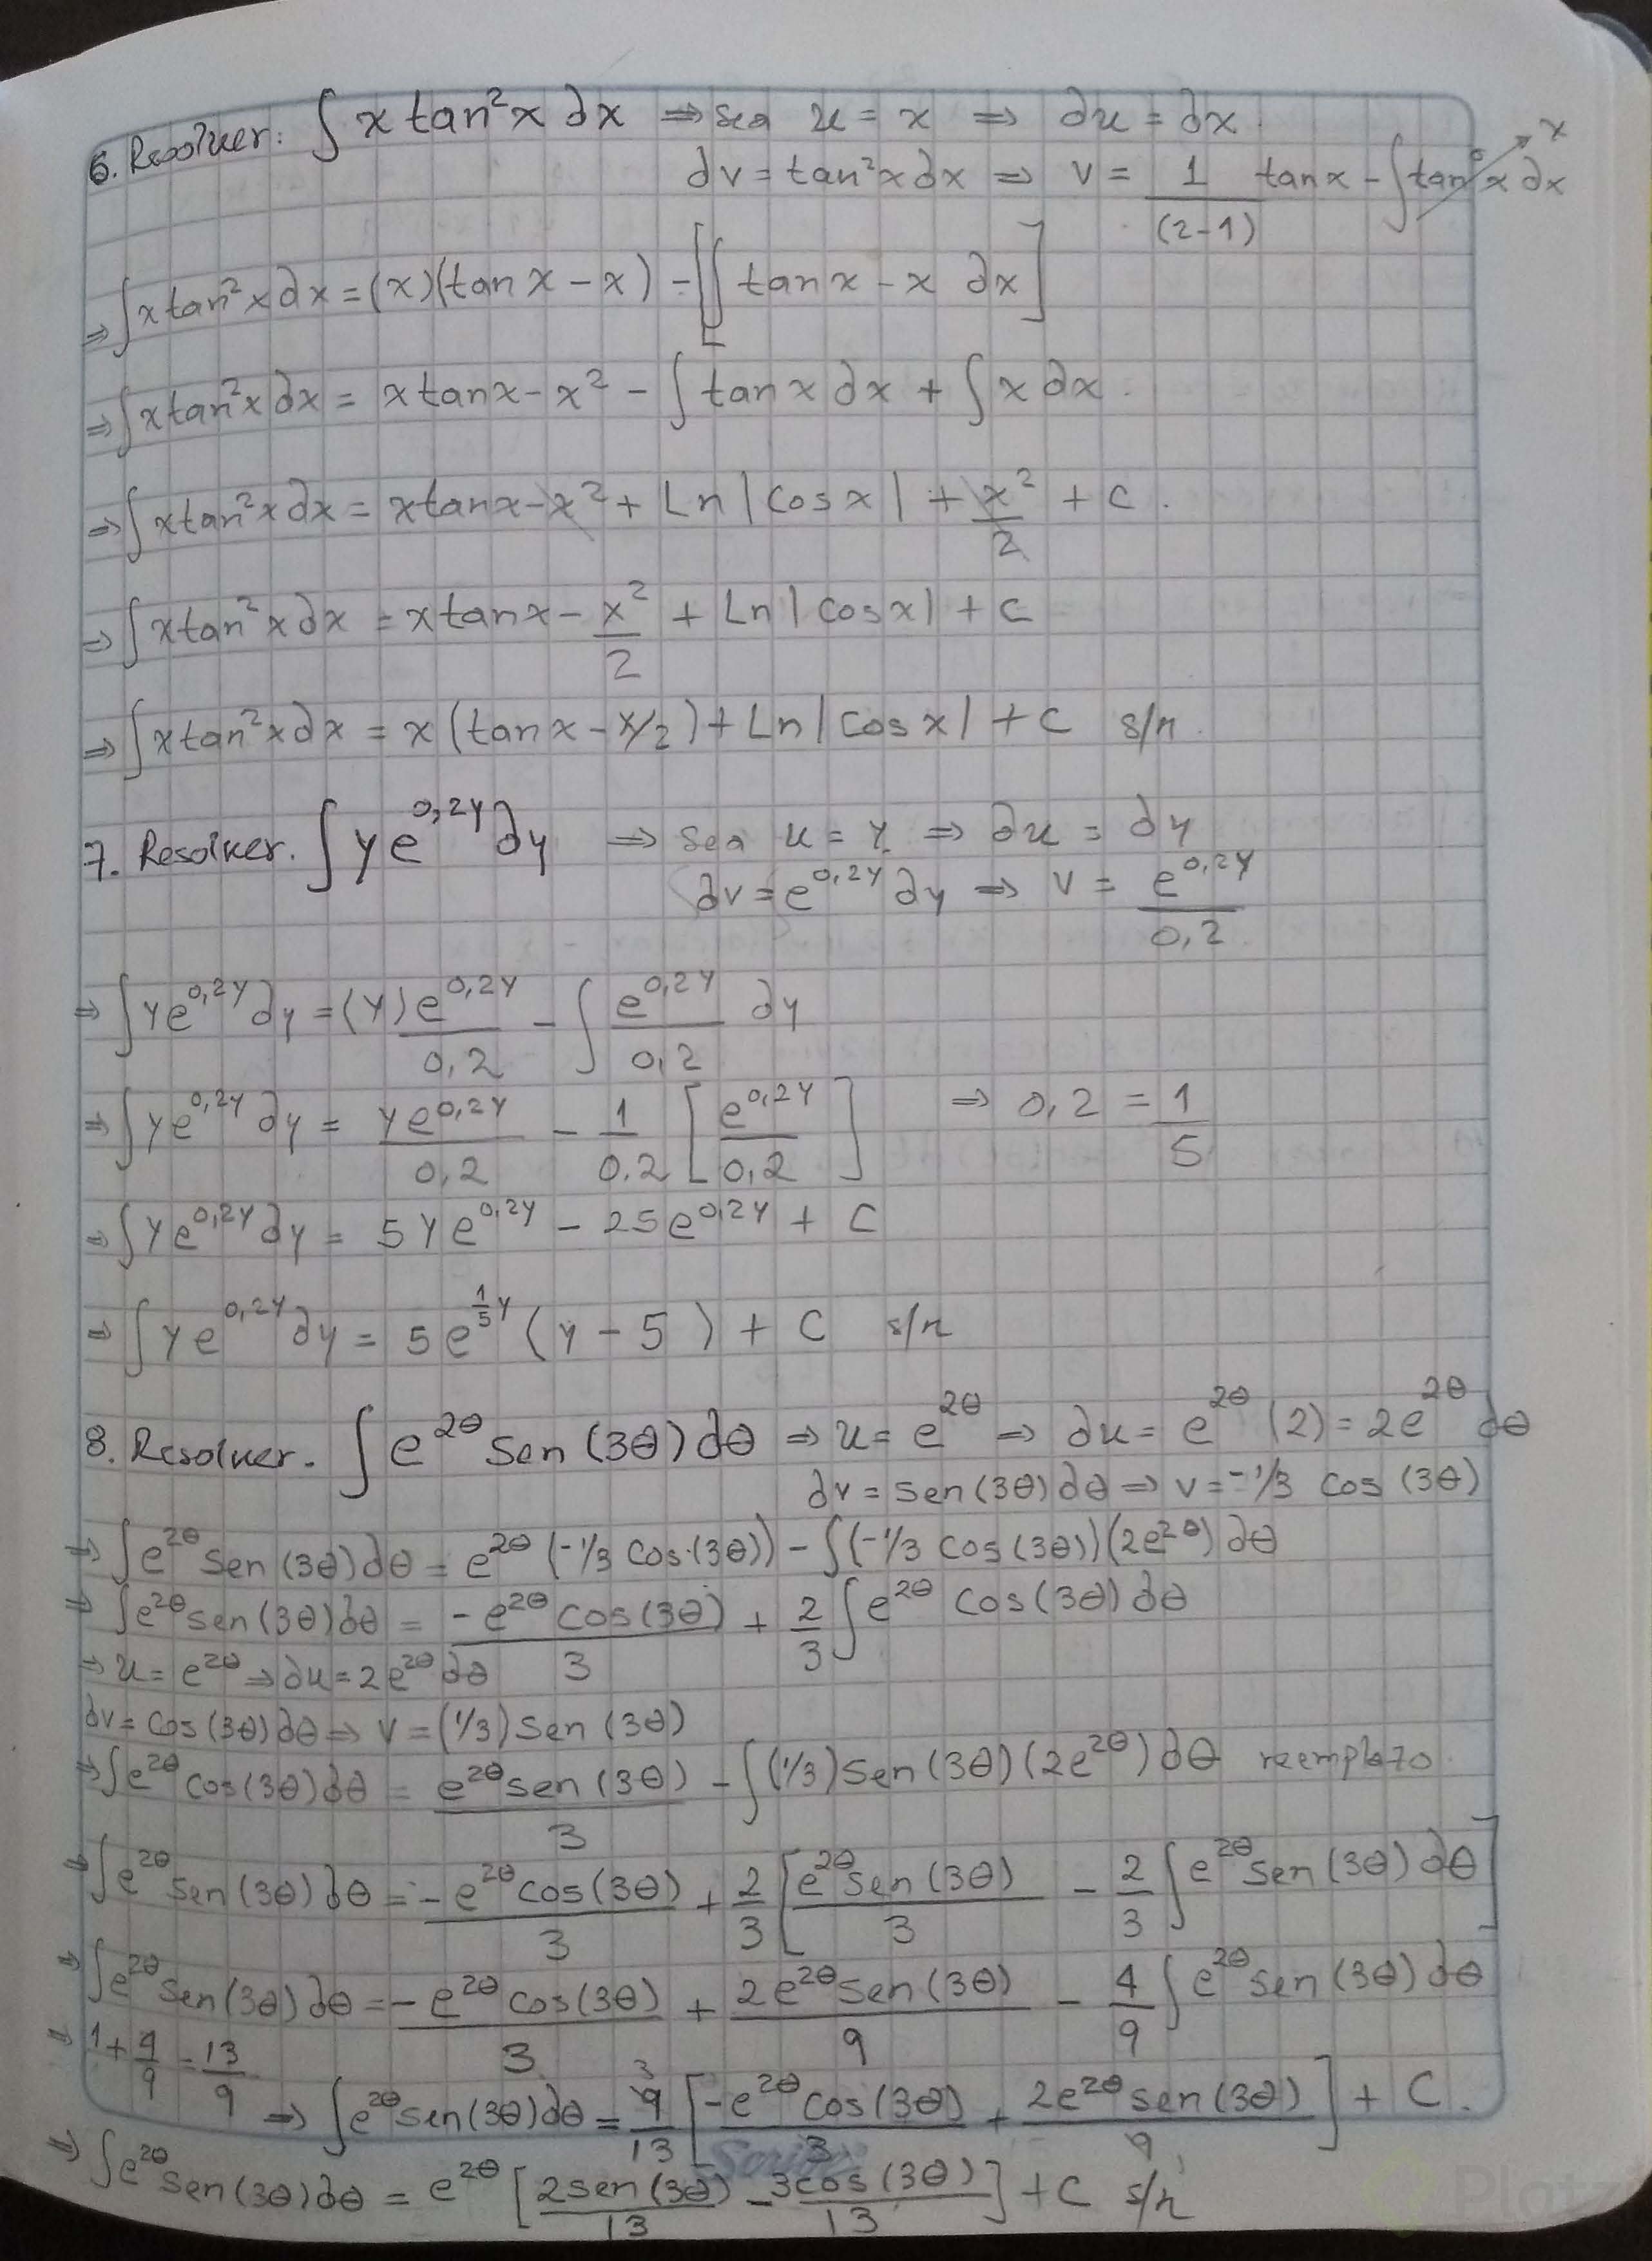 6. Resolver: ∫ x tan²x dx ⇒ sea u = x ⇒ du = dx.
dv = tan²x dx ⇒ v = 1/(2-1) tan x - ∫ tan⁰x dx x
⇒ ∫ x tan²x dx = (x)(tan x - x) - [∫ tan x - x dx]
⇒ ∫ x tan²x dx = x tan x - x² - ∫ tan x dx + ∫ x dx.
⇒ ∫ x tan²x dx = x tan x - x² + Ln |cos x| + x²/2 + C.
⇒ ∫ x tan²x dx = x tan x - x²/2 + Ln |cos x| + C
⇒ ∫ x tan²x dx = x (tan x - x/2) + Ln |cos x| + C s/n.
7. Resolver. ∫ y e^0,2y dy ⇒ sea u = y ⇒ du = dy
dv = e^0,2y dy ⇒ v = e^0,2y/0,2
⇒ ∫ y e^0,2y dy = (y) e^0,2y/0,2 - ∫ e^0,2y/0,2 dy
⇒ ∫ y e^0,2y dy = y e^0,2y/0,2 - 1/0.2 [e^0,2y/0,2] ⇒ 0,2 = 1/5
⇒ ∫ y e^0,2y dy = 5 y e^0,2y - 25 e^0,2y + C
⇒ ∫ y e^0,2y dy = 5 e^1/5 y (y - 5) + C s/n
8. Resolver. ∫ e^2θ sen (3θ) dθ ⇒ u = e^2θ ⇒ du = e^2θ (2) = 2e^2θ dθ
dv = sen (3θ) dθ ⇒ v = -1/3 cos (3θ)
⇒ ∫ e^2θ sen (3θ) dθ = e^2θ (-1/3 cos (3θ)) - ∫ (-1/3 cos (3θ)) (2e^2θ) dθ
⇒ ∫ e^2θ sen (3θ) dθ = -e^2θ cos (3θ)/3 + 2/3 ∫ e^2θ cos (3θ) dθ
⇒ u = e^2θ ⇒ du = 2e^2θ dθ
dv = cos (3θ) dθ ⇒ v = (1/3) sen (3θ)
⇒ ∫ e^2θ cos (3θ) dθ = e^2θ sen (3θ)/3 - ∫ (1/3) sen (3θ) (2e^2θ) dθ reemplazo.
⇒ ∫ e^2θ sen (3θ) dθ = -e^2θ cos (3θ)/3 + 2/3 [e^2θ sen (3θ)/3 - 2/3 ∫ e^2θ sen (3θ) dθ]
⇒ ∫ e^2θ sen (3θ) dθ = -e^2θ cos (3θ)/3 + 2e^2θ sen (3θ)/9 - 4/9 ∫ e^2θ sen (3θ) dθ
⇒ 1 + 4/9 = 13/9
⇒ ∫ e^2θ sen (3θ) dθ = 9/13 [-e^2θ cos (3θ)/3 + 2e^2θ sen (3θ)/9] + C.
Scribe
⇒ ∫ e^2θ sen (3θ) dθ = e^2θ [2sen (3θ)/13 - 3cos (3θ)/13] + C s/n